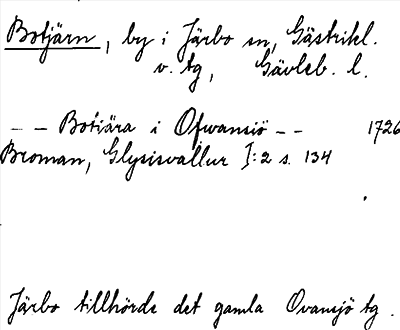 Botjärn, by i Järbo sn, Gästrikl.
v. tg, Gävleb. l.
-- Botiära i Ofwansiö -- 1726
Broman, Glysisvallur I:2 s. 134
Järbo tillhörde det gamla Ovansjö tg.